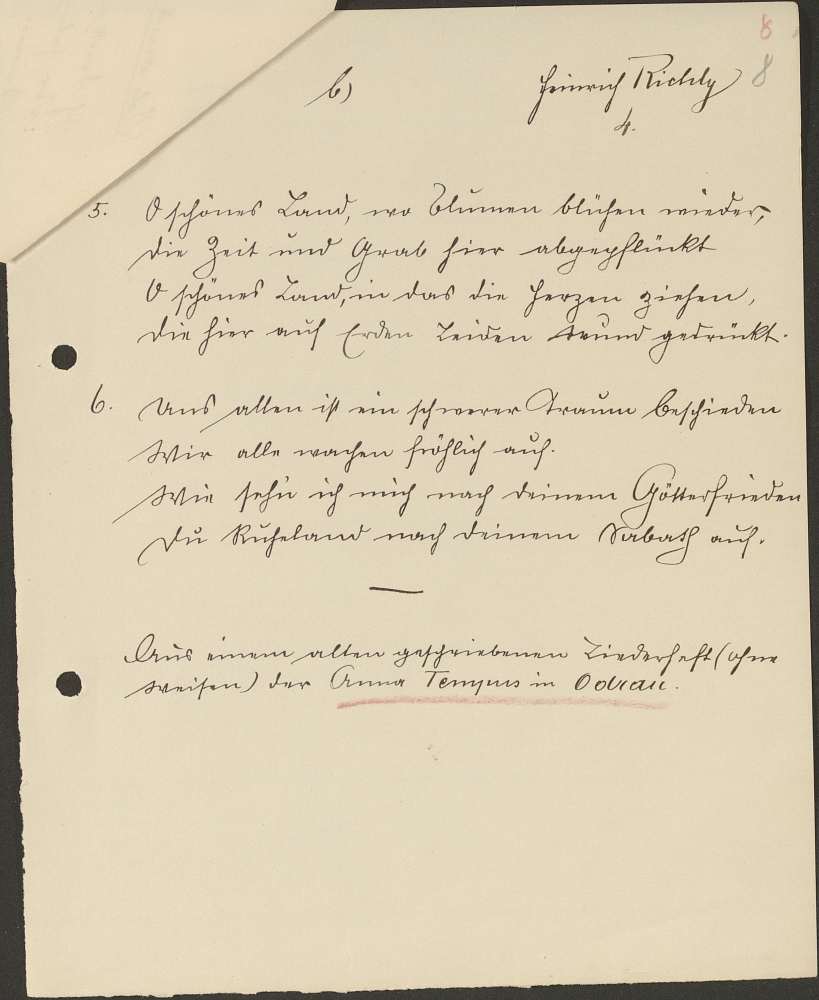 8
8
b)
Heinrich Richly
4.
5. O schönes Land, wo Blumen blühen wieder,
die Zeit und Grab hier abgepflückt
O schönes Land, in das die Herzen ziehen,
die hier auf Erden Leiden wund gedrückt.
6. Uns allen ist ein schwerer Traum beschieden
Wir alle wachen fröhlich auf.
Wie sehn ich mich nach deinem Götterfrieden
Du Ruheland nach deinem Sabath auf.
Aus einem alten geschriebenen Liederheft (ohne
Weisen) der Anna Tempus in Odrau.